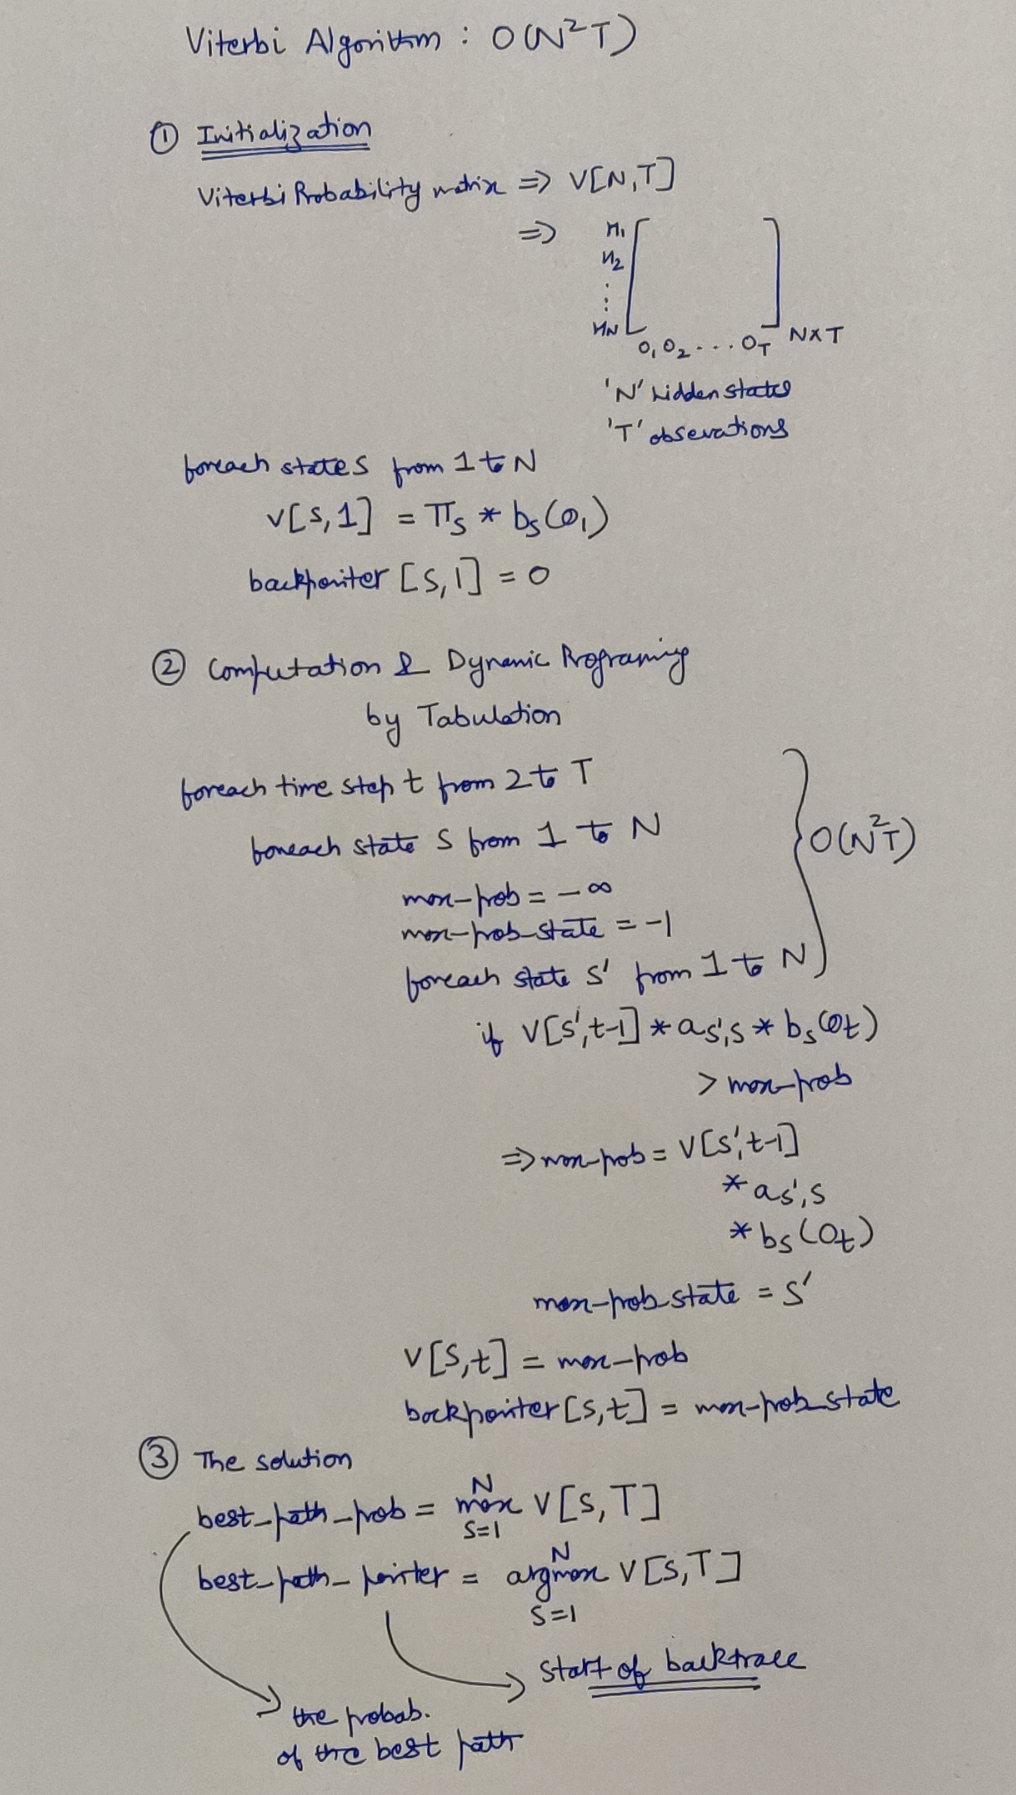 Viterbi Algorithm : O(N²T)
① Initialization
Viterbi Probability matrix => V[N,T]
=> H₁
H₂
⋮
HN
O₁ O₂ ... OT N×T
'N' hidden states
'T' obsevations
foreach state s from 1 to N
V[S,1] = πs * bs(O₁)
backpointer [S,1] = 0
② Computation & Dynamic Programing
by Tabulation
foreach time step t from 2 to T
foreach state S from 1 to N
O(N²T)
max-prob = -∞
max-prob-state = -1
foreach state s' from 1 to N
if V[s',t-1] * as',s * bs(Ot)
> max-prob
=> max-prob = V[s',t-1]
* as',s
* bs(Ot)
max-prob-state = s'
V[S,t] = max-prob
backpointer[s,t] = max-prob-state
③ The solution
best_path_prob = max V[s,T]
N
S=1
best_path_pointer = argmax V[S,T]
N
S=1
Start of backtrace
the probab.
of the best path